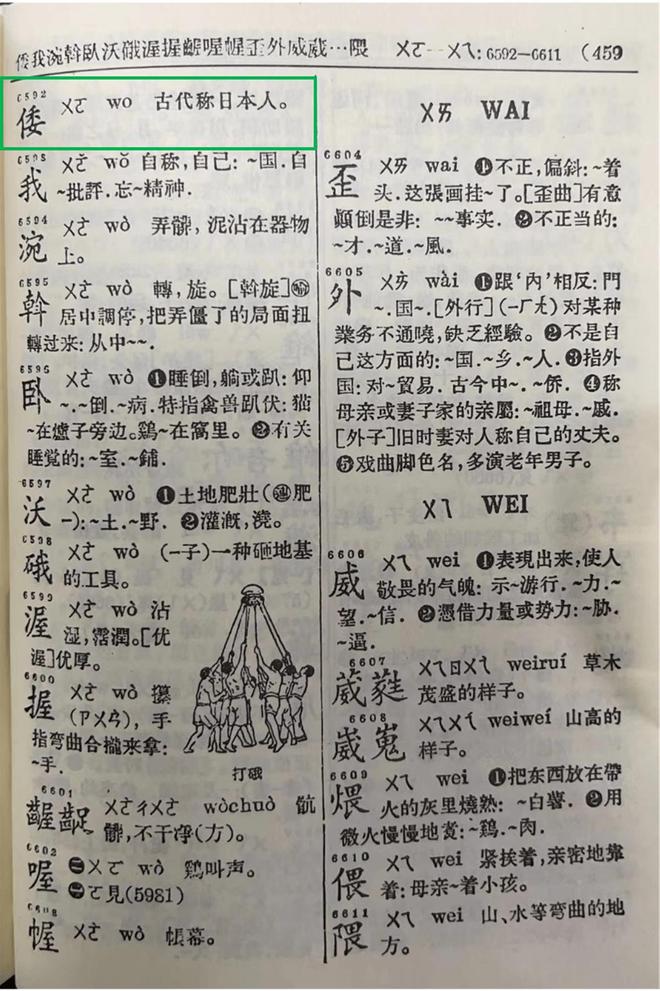 倭我涴斡臥沃硪渥握齷喔幄歪外威葳…隈 ㄨㄛ—ㄨㄟ:6592—6611 (459
6592
倭 ㄨㄛ wo 古代称日本人。
6593
我 ㄨㄛˇ wǒ 自称,自己: ~国.自
~批評.忘~精神.
6594
涴 ㄨㄛˋ wò 弄髒, 泥沾在器物
上。
6595
斡 ㄨㄛˋ wò 轉,旋。[斡旋]
居中調停,把弄僵了的局面扭
轉过来: 从中~~.
6596
卧 ㄨㄛˋ wò ❶睡倒,躺或趴: 仰
~.~倒.~病.特指禽兽趴伏: 猫
~在爐子旁边。鷄~在窩里。❷有关
睡觉的: ~室.~鋪.
6597
沃 ㄨㄛˋ wò ❶土地肥壯 (連肥
—):~土.~野. ❷灌漑,澆。
6598
硪 ㄨㄛˋ wò (—子)一种砸地基
的工具。
6599
渥 ㄨㄛˋ wò 沾
湿,霑潤。[优
渥]优厚。
6600
握 ㄨㄛˋ wò 攥
(ㄗㄨㄢˋ), 手
指弯曲合攏来拿:
~手.
打硪
6601
齷齪 ㄨㄛˋㄔㄨㄛˋ wòchuò 骯
髒,不干净(方)。
6602
喔 ㊀ㄨㄛ wò 鷄叫声。
㊁ㄛ見(5981)
6603
幄 ㄨㄛˋ wò 帳幕。
ㄨㄞ WAI
6604
歪 ㄨㄞ wai ❶不正,偏斜: ~着
头.这張画挂~了。[歪曲]有意
顚倒是非: ~~事实. ❷不正当的:
~才.~道.~風.
6605
外 ㄨㄞˋ wài ❶跟‘內’相反: 門
~.国~.[外行](—ㄏㄤˊ)对某种
業务不通曉,缺乏經驗。❷不是自
己这方面的: ~国.~乡.~人.❸指外
国: 对~贸易. 古今中~. ~侨. ❹称
母亲或妻子家的亲屬: ~祖母.~戚.
[外子]旧时妻对人称自己的丈夫。
❺戏曲脚色名,多演老年男子。
ㄨㄟ WEI
6606
威 ㄨㄟ wei ❶表現出来,使人
敬畏的气魄: 示~游行. ~力.~
望.~信. ❷憑借力量或势力:~胁.
~逼.
6607
葳蕤 ㄨㄟㄖㄨㄟˊ weiruí 草木
茂盛的样子。
6608
崴嵬 ㄨㄟㄨㄟˊ weiweí 山高的
样子。
6609
煨 ㄨㄟ wei ❶把东西放在帶
火的灰里燒熟: ~白薯. ❷用
微火慢慢地煑: ~鷄.~肉.
6610
偎 ㄨㄟ wei 紧挨着,亲密地靠
着: 母亲~着小孩。
6611
隈 ㄨㄟ wei 山、水等弯曲的地
方。